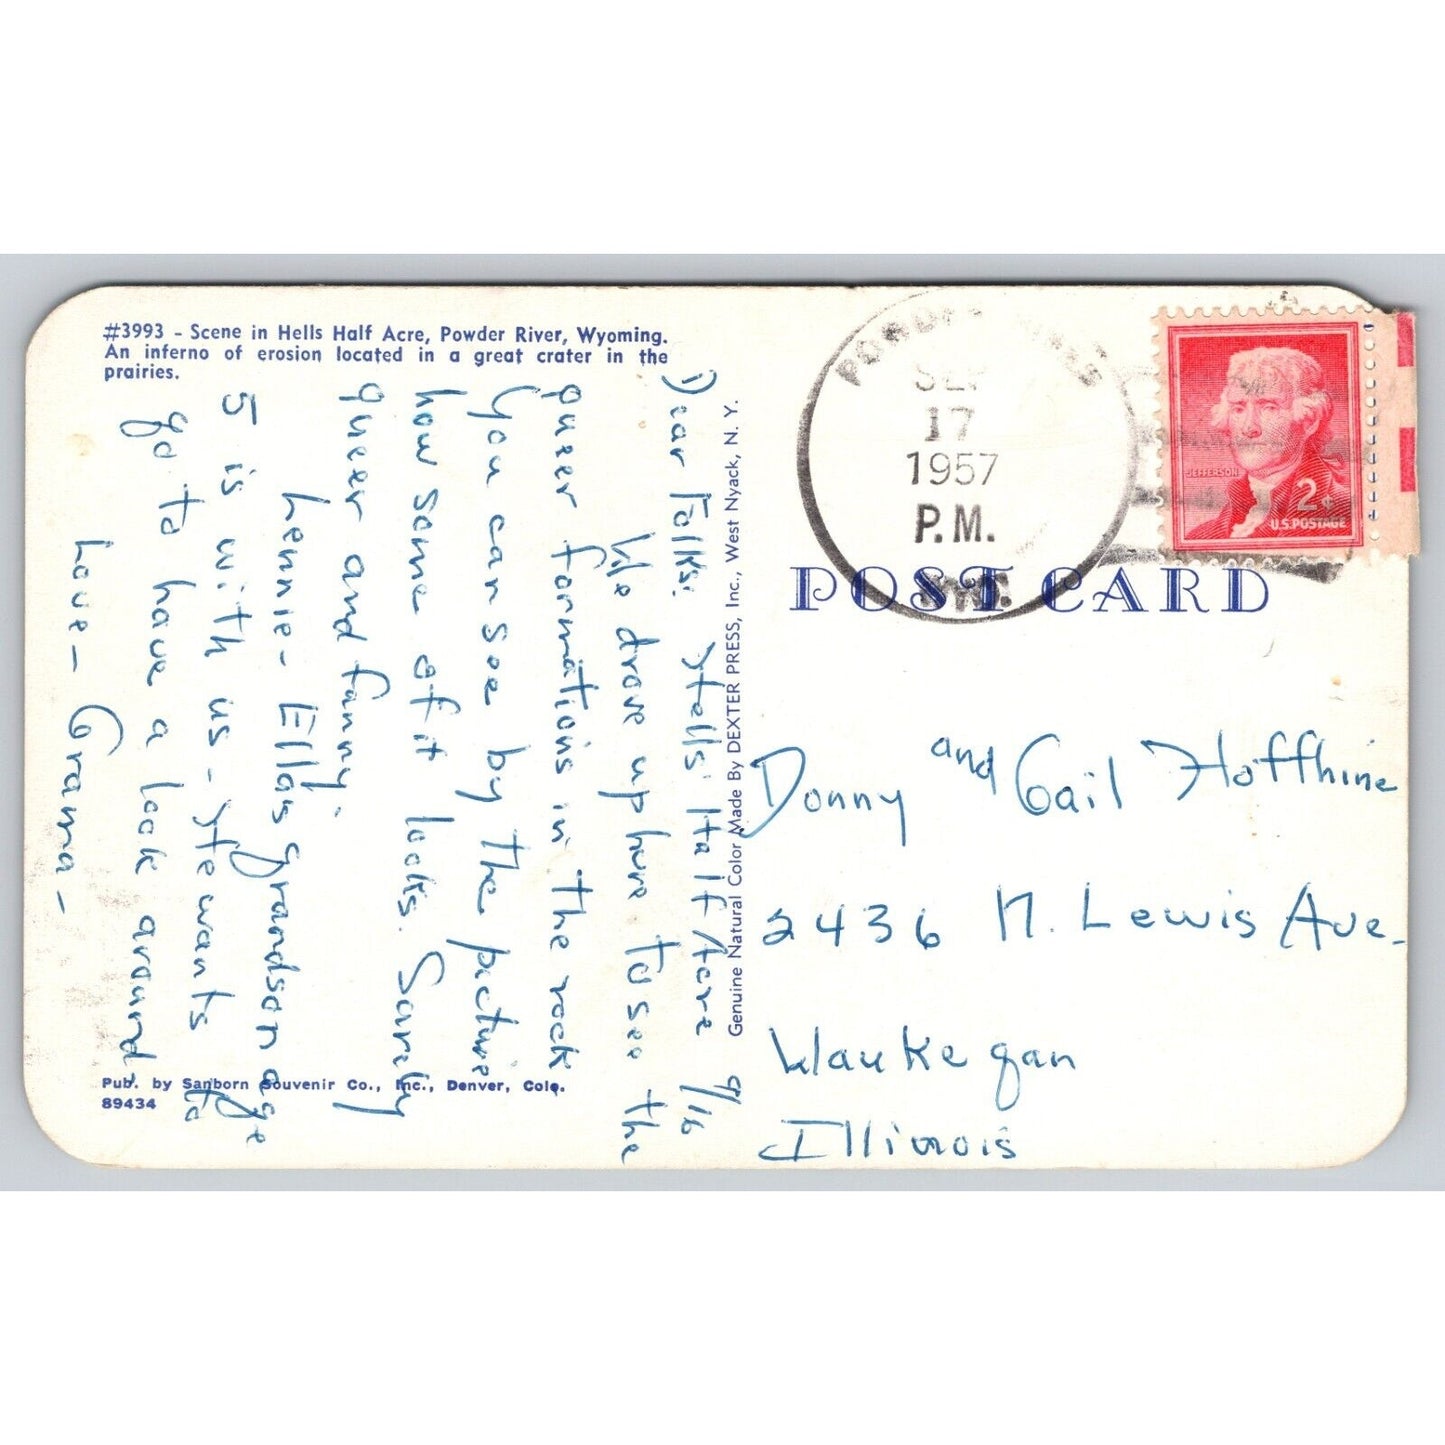 #3993 - Scene in Hells Half Acre, Powder River, Wyoming.
An inferno of erosion located in a great crater in the
prairies.
Hells Half Acre 9/16
Dear Folks:
We drove up here to see the
queer formations in the rock
You can see by the picture
how some of it looks. Surely
queer and funny.
Lennie - Ella's grandson age
5 is with us - He wants to
go to have a look around.
Love - Grama -
Pub. by Sanborn Souvenir Co., Inc., Denver, Colo.
89434
Genuine Natural Color Made By DEXTER PRESS, Inc., West Nyack, N. Y.
SEP
17
1957
P.M.
WYO.
JEFFERSON
2¢
U.S. POSTAGE
POST CARD
Donny and Gail Hoffhine
2436 N. Lewis Ave.
Waukegan
Illinois